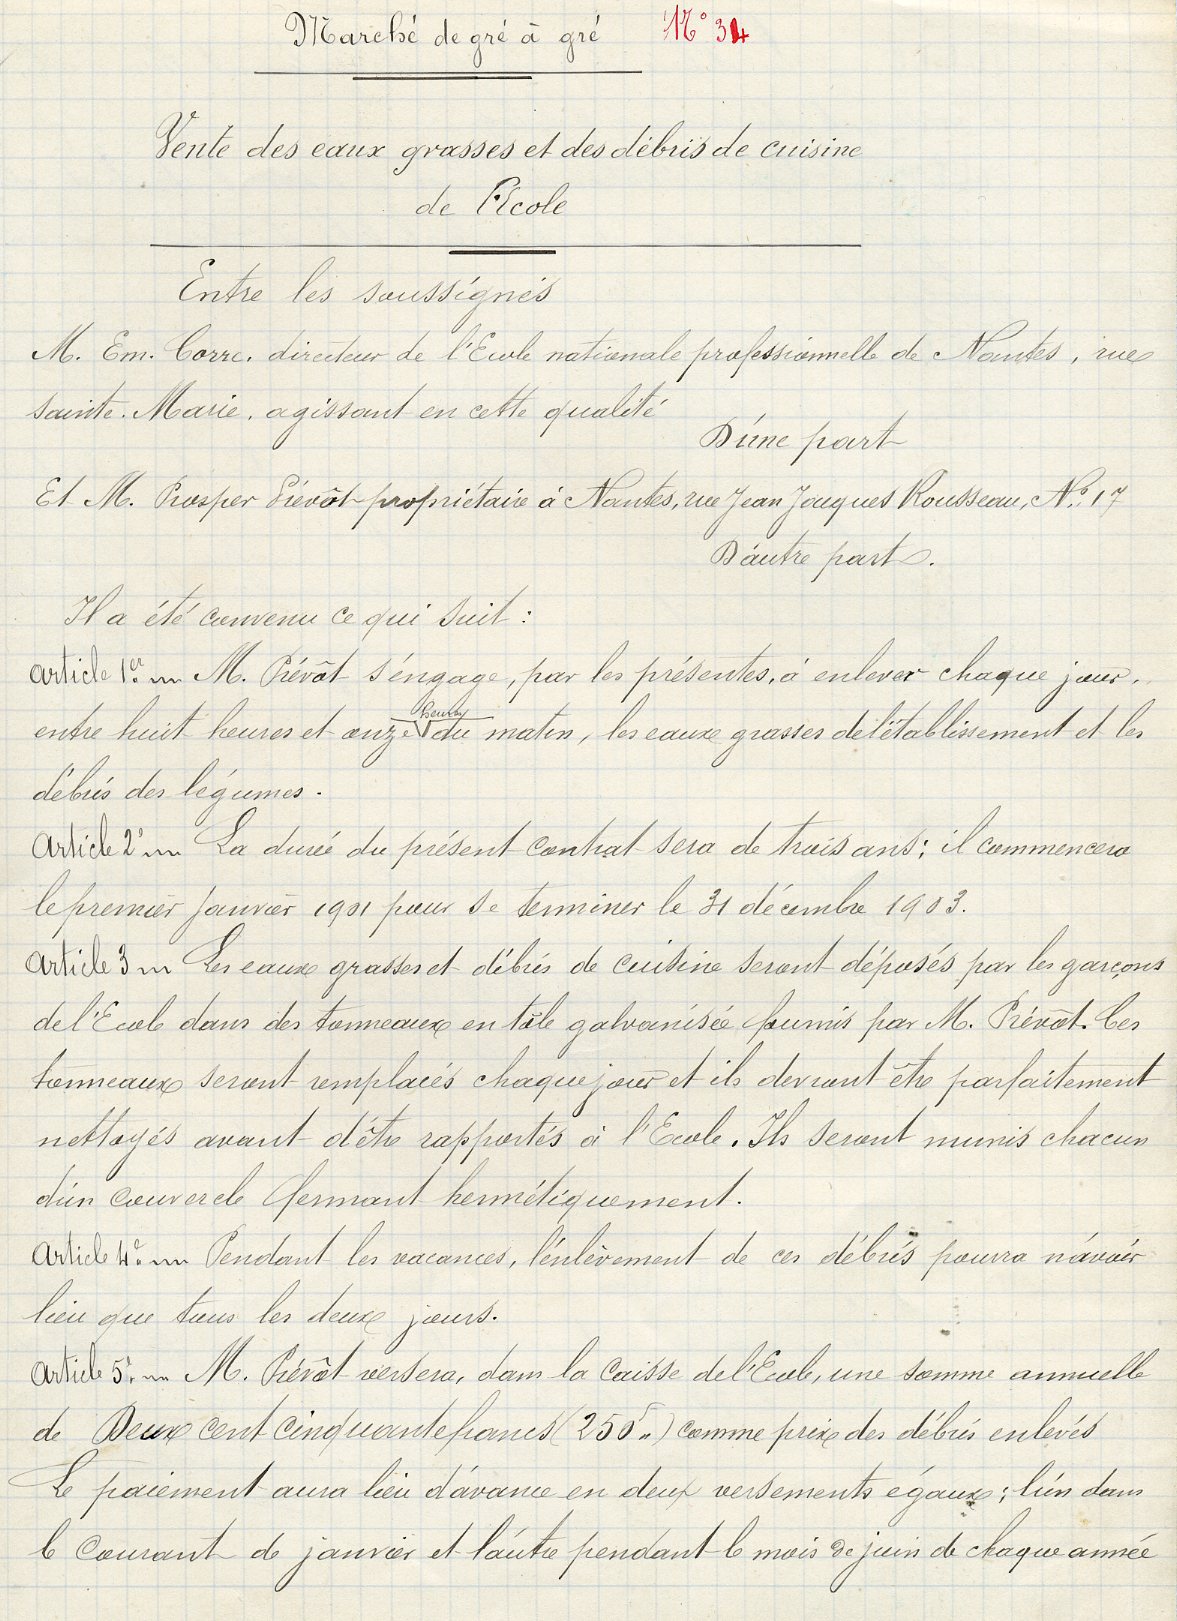 Marché de gré à gré N° 34
Vente des eaux grasses et des débris de cuisine
de l'Ecole
Entre les soussignés
M. Em. Corre, directeur de l'Ecole nationale professionnelle de Nantes, rue
Sainte-Marie, agissant en cette qualité
D'une part
Et M. Prosper Prévôt propriétaire à Nantes, rue Jean Jacques Rousseau, N° 17
D'autre part.
Il a été convenu ce qui suit :
Article 1er M. Prévôt s'engage, par les présentes, à enlever chaque jour,
entre huit heures et onze heures du matin, les eaux grasses de l'établissement et les
débris des légumes.
Article 2° La durée du présent contrat sera de trois ans ; il commencera
le premier Janvier 1901 pour se terminer le 31 décembre 1903.
Article 3 Les eaux grasses et débris de cuisine seront déposés par les garçons
de l'Ecole dans des tonneaux en tôle galvanisée fournis par M. Prévôt. Ces
tonneaux seront remplacés chaque jour et ils devront être parfaitement
nettoyés avant d'être rapportés à l'Ecole. Ils seront munis chacun
d'un couvercle fermant hermétiquement.
Article 4° Pendant les vacances, l'enlèvement de ces débris pourra n'avoir
lieu que tous les deux jours.
Article 5° M. Prévôt versera, dans la Caisse de l'Ecole, une somme annuelle
de Deux cent cinquante francs (250f ") comme prix des débris enlevés
Le paiement aura lieu d'avance en deux versements égaux ; l'un dans
le courant de janvier et l'autre pendant le mois de juin de chaque année